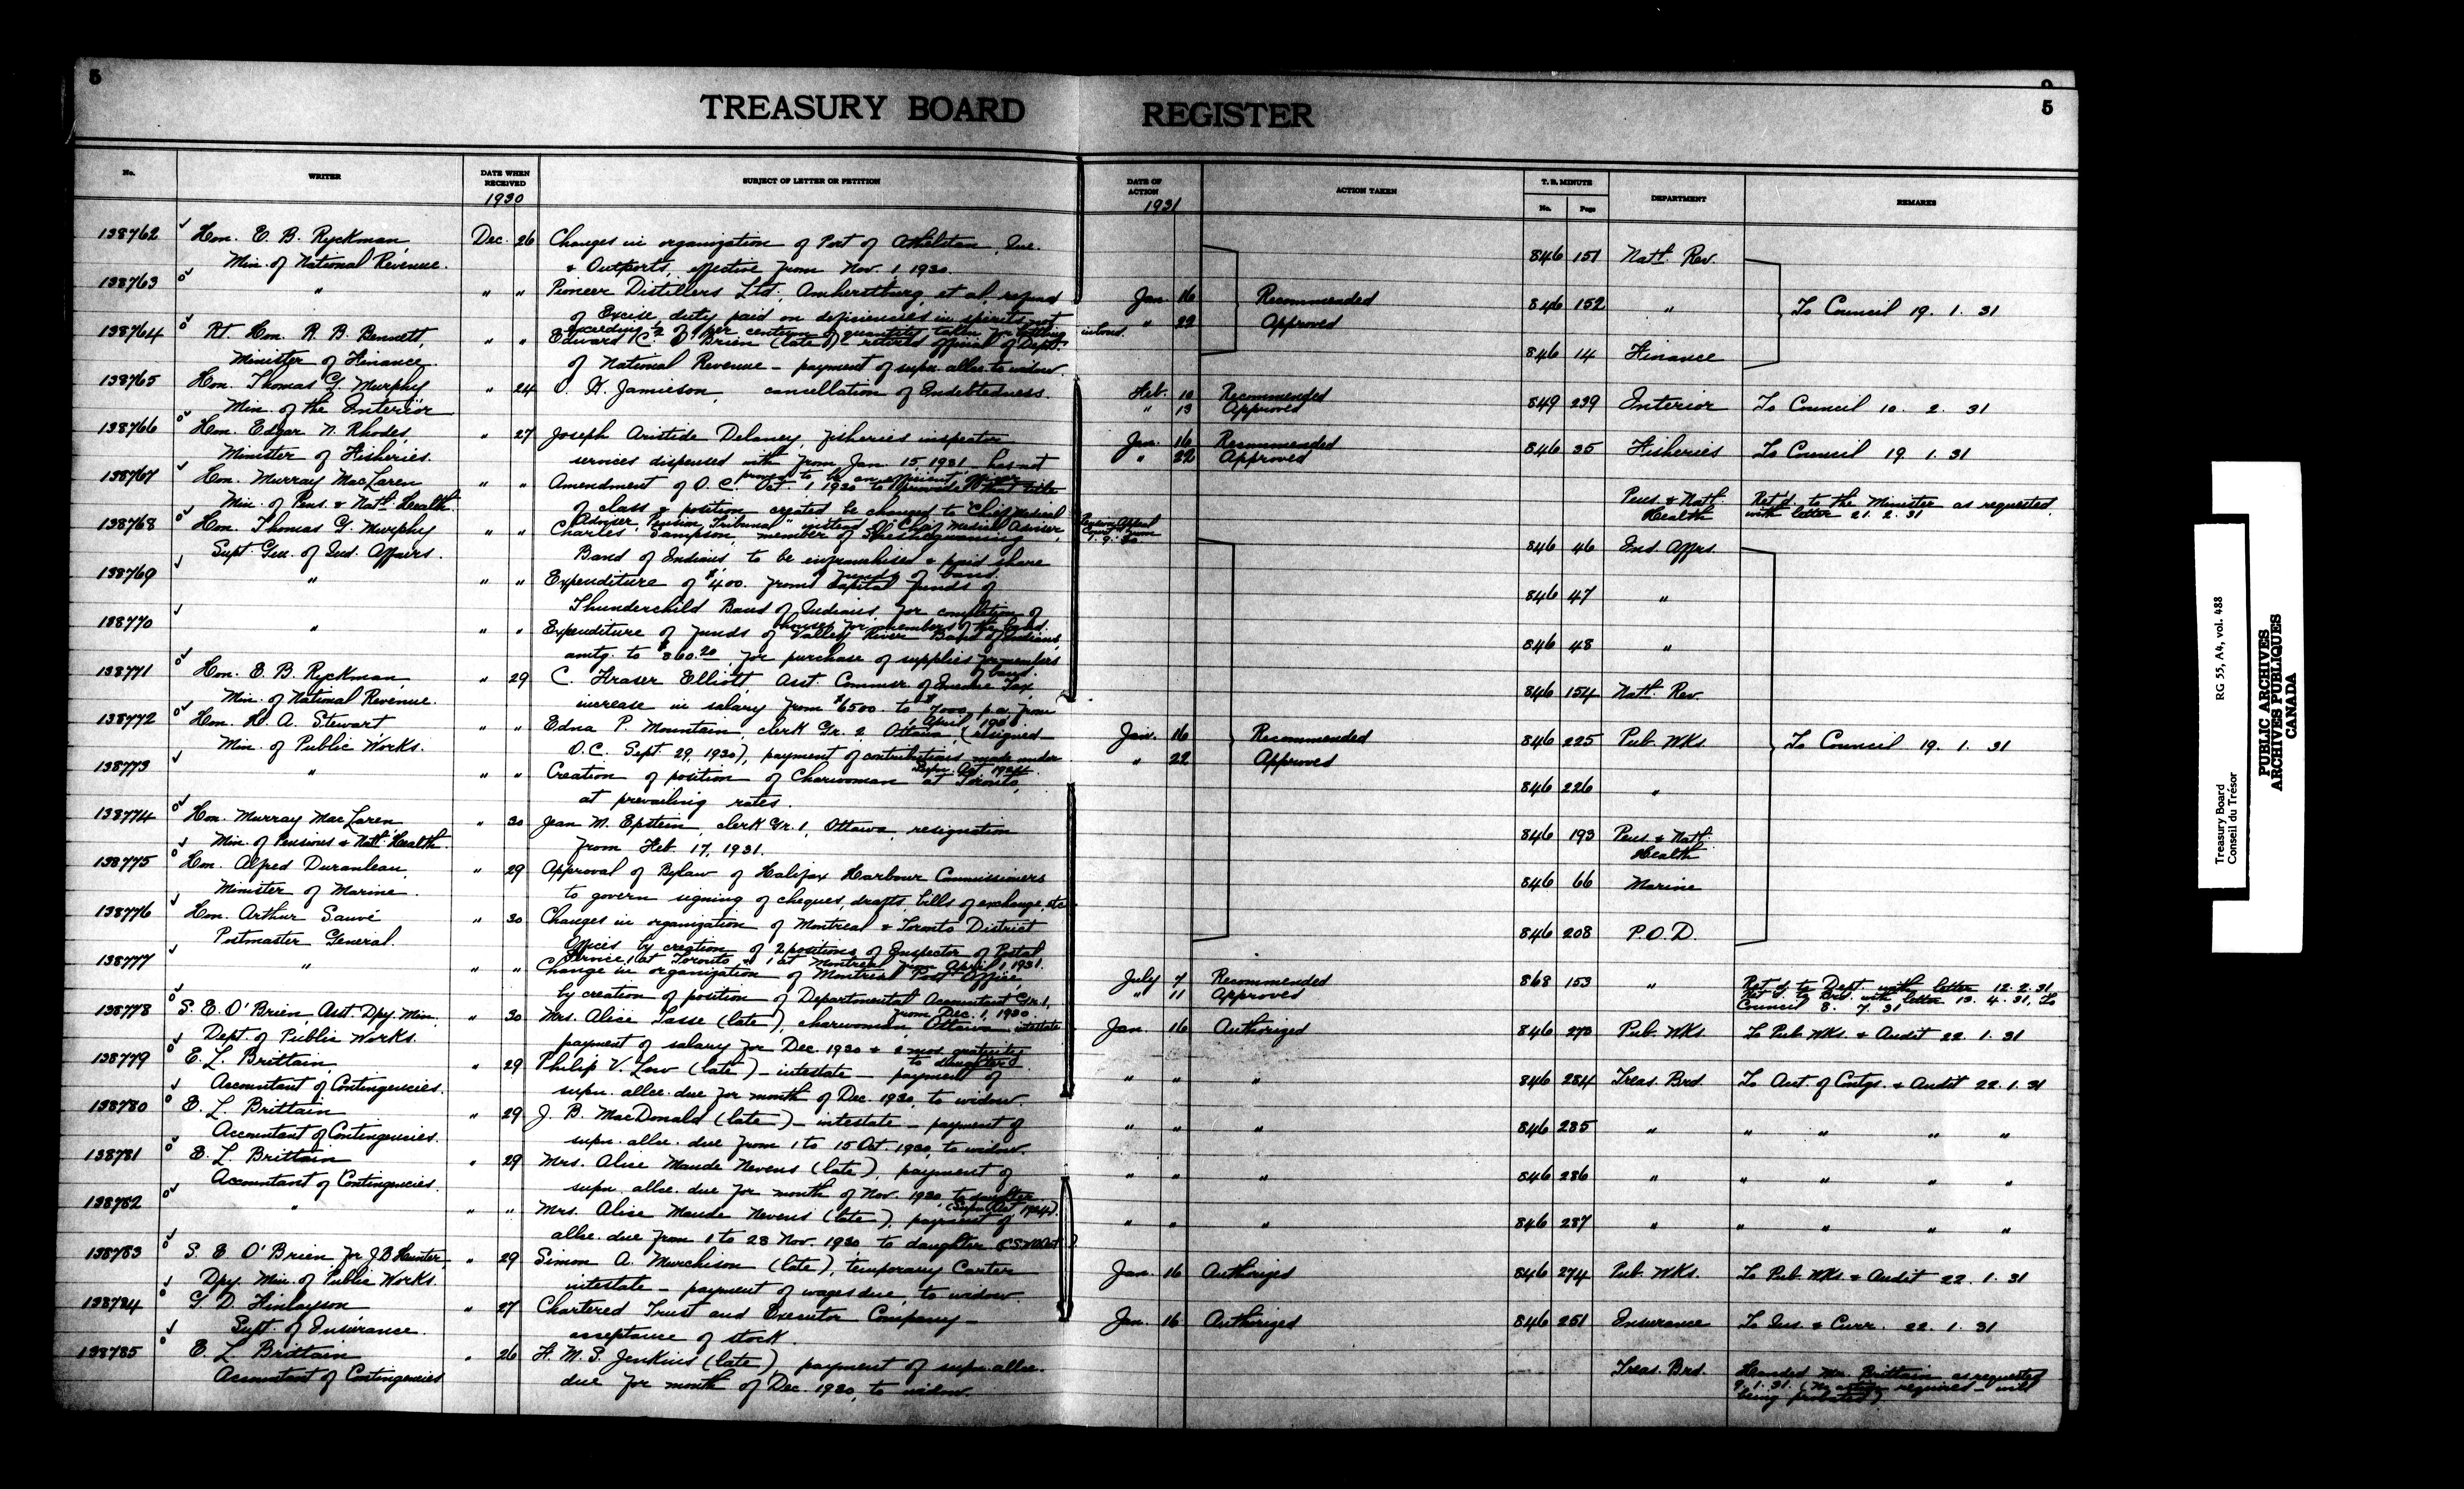 5
5
TREASURY BOARD REGISTER
No. WRITER DATE WHEN RECEIVED SUBJECT OF LETTER OR PETITION DATE OF ACTION ACTION TAKEN T. B. MINUTE DEPARTMENT REMARKS
1930 1931 No. Page
138762 Hon. E. B. Ryckman, Dec. 26 Changes in organization of Port of Athelstan, Que. 846 151 Natl. Rev.
Min. of National Revenue. & Outports, effective from Nov. 1, 1930.
138763 " " " Pioneer Distillers Ltd., Amherstburg, et al, refund Jan. 16 Recommended 846 152 " To Council 19. 1. 31
of Excise duty paid on deficiencies in spirits not " 22 Approved
exceeding ½ of 1 per centum of quantity taken for bottling in bond.
138764 Rt. Hon. R. B. Bennett, " " Edward C. O'Brien (late) retired official of Dept. 846 14 Finance
Minister of Finance. of National Revenue - payment of supn. allce to widow.
138765 Hon. Thomas G. Murphy " 24 O. H. Jamieson, cancellation of Indebtedness. Feb. 10 Recommended 849 239 Interior To Council 10. 2. 31
Min. of the Interior " 13 Approved
138766 Hon. Edgar N. Rhodes, " 27 Joseph Aristide Delaney, fisheries inspector Jan. 16 Recommended 846 35 Fisheries To Council 19. 1. 31
Minister of Fisheries. services dispensed with from Jan. 15, 1931, has not " 22 Approved
proved to be an efficient officer
138767 Hon. Murray MacLaren " " Amendment of O.C. Oct. 1, 1930 to provide that title Pens. & Natl. Health Ret'd. to the Minister as requested,
Min. of Pens. & Natl. Health. of class & position created be changed to "Chief Medical with letter 21. 2. 31
Adviser, Pension Tribunal" instead of Chief Medical Adviser, Pension Appeal Court from 1. 9. 30
138768 Hon. Thomas G. Murphy " " Charles Sampson, member of Sheshegwaning 846 46 Ind. Affrs.
Supt. Gen. of Ind. Affairs. Band of Indians to be enfranchised & paid share
of funds of band.
138769 " " " Expenditure of $400. from Capital funds of 846 47 "
Thunderchild Band of Indians for completion of
houses for members of the band.
138770 " " " Expenditure of funds of Valley River Band of Indians, 846 48 "
amtg. to $360.20 for purchase of supplies for members
of band.
138771 Hon. E. B. Ryckman, " 29 C. Fraser Elliott, Asst. Commsr. of Income Tax, 846 154 Natl. Rev.
Min. of National Revenue. increase in salary from $6500. to $7000 p.a. from
1 April, 1930.
138772 Hon. H. A. Stewart " " Edna P. Mountain, clerk Gr. 2, Ottawa, (resigned Jan. 16 Recommended 846 225 Pub. Wks. To Council 19. 1. 31
Min. of Public Works. O.C. Sept. 29, 1930), payment of contributions made under " 22 Approved
Supn. Act, 1924.
138773 " " " Creation of position of Charwoman at Toronto, 846 226 "
at prevailing rates.
138774 Hon. Murray MacLaren " 30 Jean M. Epstein, clerk Gr. 1, Ottawa, resignation 846 193 Pens. & Natl. Health
Min. of Pensions & Natl. Health. from Feb. 17, 1931.
138775 Hon. Alfred Duranleau, " 29 Approval of Bylaw of Halifax Harbour Commissioners 846 66 Marine
Minister of Marine. to govern signing of cheques, drafts, bills of exchange, etc.
138776 Hon. Arthur Sauvé " 30 Changes in organization of Montreal & Toronto District 846 208 P.O.D.
Postmaster General. Offices by creation of 2 positions of Inspector of Postal
Service, 1 at Toronto & 1 at Montreal, from April 1, 1931.
138777 " " " Change in organization of Montreal Post Office, July 7 Recommended 868 153 " Ret'd. to Dept. with letter 12. 2. 31
by creation of position of Departmental Accountant Gr. 1, " 11 Approved Ret'd. to Brd. with letter 13. 4. 31, To
from Dec. 1, 1930. Council 8. 7. 31
138778 S. E. O'Brien, Asst. Dpy. Min. " 30 Mrs. Alice Tasse (late), charwoman Ottawa intestate Jan. 16 Authorized 846 273 Pub. Wks. To Pub. Wks. & Audit 22. 1. 31
Dept. of Public Works. payment of salary for Dec. 1930 & 2 mos gratuity
to daughters.
138779 E. L. Brittain, " 29 Philip V. Low (late) - intestate - payment of " " " 846 284 Treas. Brd. To Acct. of Contgs. & Audit 22. 1. 31
Accountant of Contingencies. supn. allce. due for month of Dec. 1930, to widow.
138780 E. L. Brittain " 29 J. B. MacDonald (late) - intestate - payment of " " " 846 285 " " " " "
Accountant of Contingencies. supn. allce. due from 1 to 15 Oct. 1930, to widow.
138781 E. L. Brittain " 29 Mrs. Alice Maude Nevens (late), payment of " " " 846 286 " " " " "
Accountant of Contingencies. supn. allce. due for month of Nov. 1930, to daughter.
(Supn. Act 1924).
138782 " " " Mrs. Alice Maude Nevens (late), payment of " " " 846 287 " " " " "
allce. due from 1 to 23 Nov. 1930 to daughter
138783 S. E. O'Brien for J B Hunter " 29 Simon A. Murchison (late), temporary Carter Jan. 16 Authorized 846 274 Pub. Wks. To Pub. Wks. & Audit 22. 1. 31
Dpy. Min. of Public Works. intestate - payment of wages due, to widow
138784 G. D. Finlayson " 27 Chartered Trust and Executor Company - Jan. 16 Authorized 846 251 Insurance To Ins. & Curr. 22. 1. 31
Supt. of Insurance. acceptance of stock
138785 E. L. Brittain " 26 F. M. S. Jenkins (late), payment of supn. allce. Treas. Brd. Handed Mr. Brittain as requested
Accountant of Contingencies due for month of Dec. 1930, to widow 9. 1. 31. (No action required - will
being probated)
Treasury Board RG 55, A4, vol. 488
Conseil du Trésor
PUBLIC ARCHIVES
ARCHIVES PUBLIQUES
CANADA